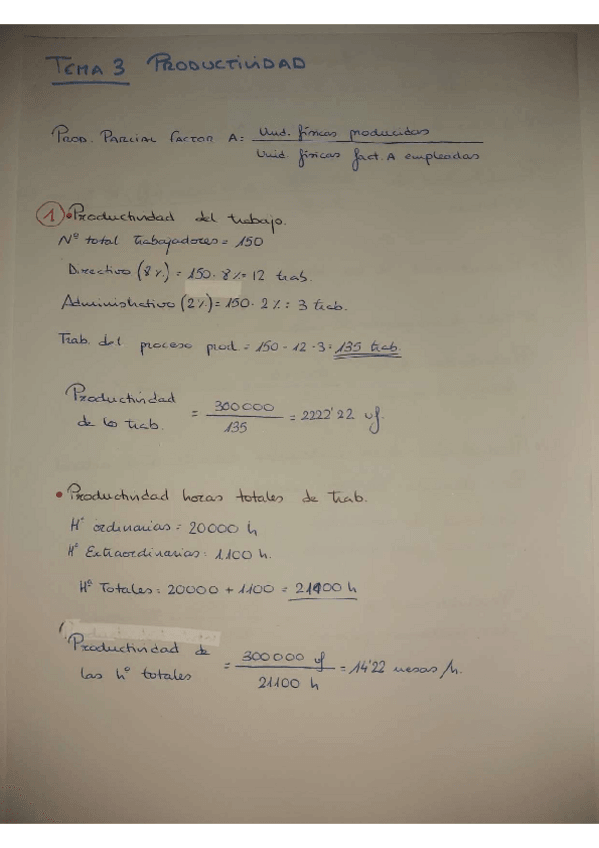 TEMA 3 PRODUCTIVIDAD
PROD. PARCIAL FACTOR A: Unid. físicas producidas
Unid. físicas fact. A empleadas
1 • Productividad del trabajo.
Nº total trabajadores = 150
Directivo (8%) = 150 · 8% = 12 trab.
Administrativo (2%) = 150 · 2% = 3 trab.
Trab. del proceso prod. = 150 - 12 - 3 = 135 trab.
Productividad de los trab. = 300000 / 135 = 2222'22 uf
• Productividad horas totales de trab.
Hº ordinarias = 20000 h
Hº Extraordinarias: 1.100 h.
Hº Totales: 20000 + 1100 = 21100 h
Productividad de las hº totales = 300000 uf / 21100 h = 14'22 mesas/h.